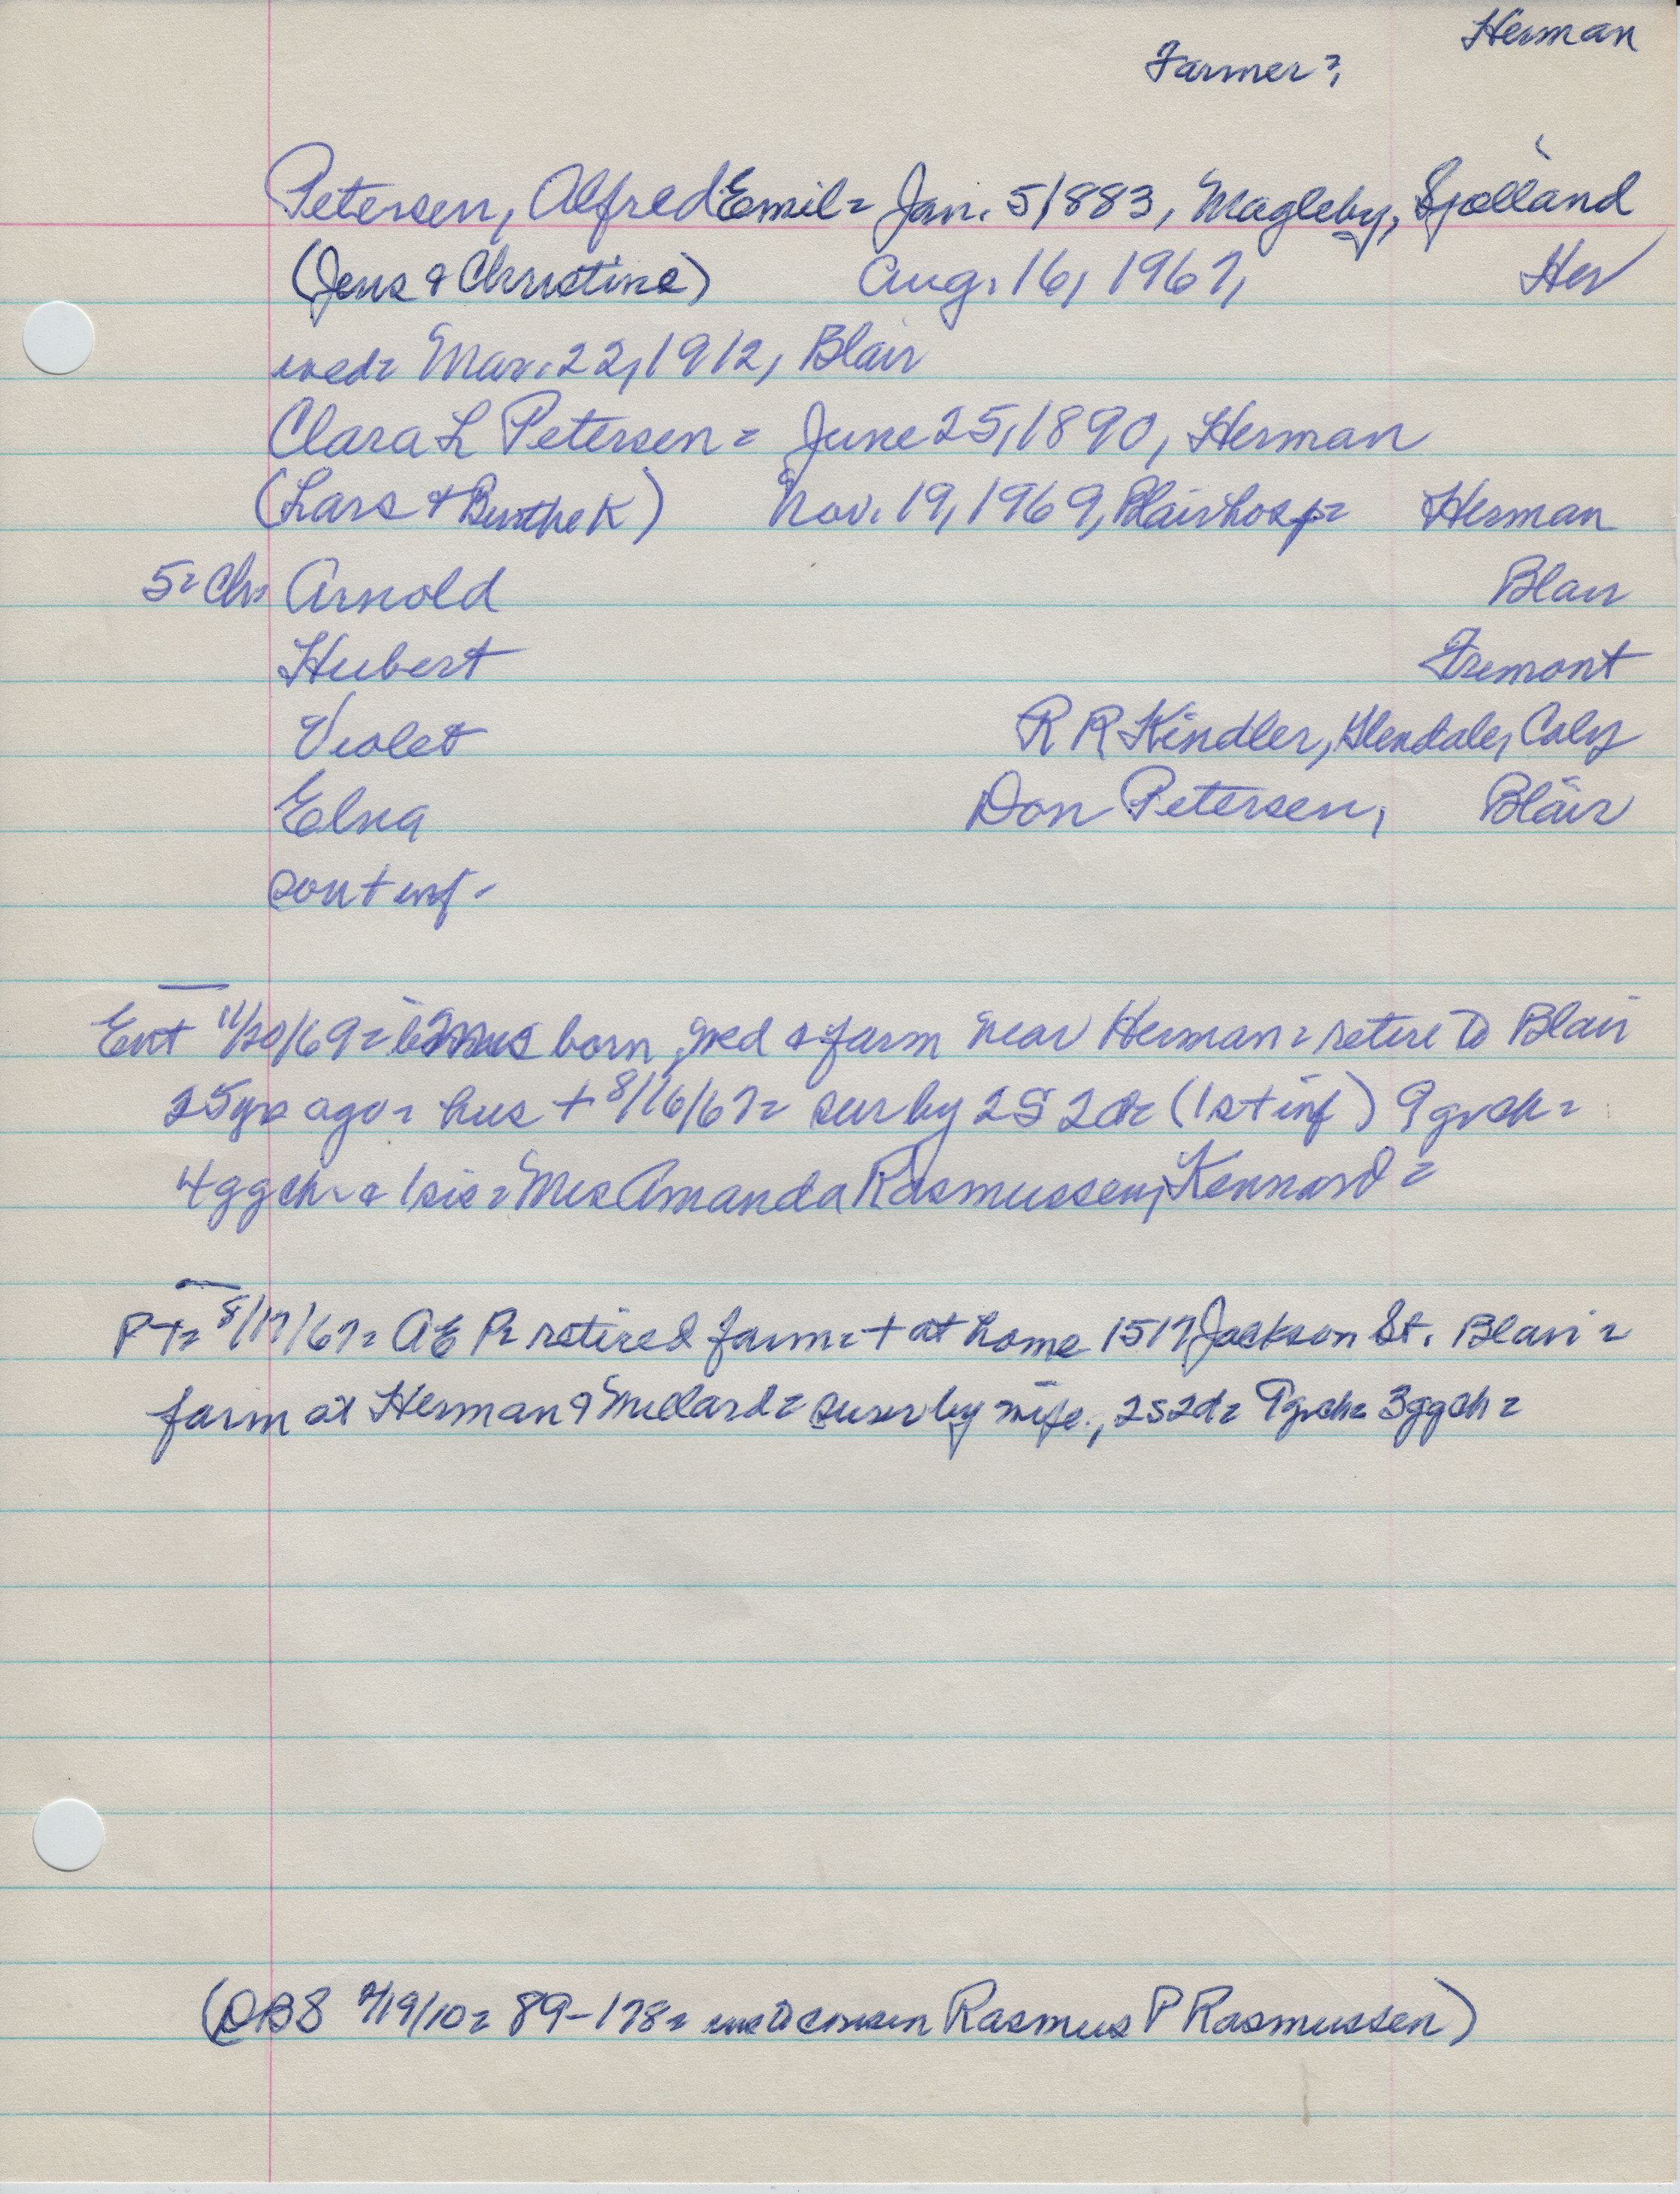 Herman
Farmer =,
Petersen, Alfred Emil = Jan. 5, 1883, Magleby, Sjælland
(Jens & Christine) Aug. 16, 1967, Her
wed = Mar. 22, 1912, Blair
Clara L Petersen = June 25, 1890, Herman
(Lars & Berthe K) Nov. 19, 1969, Blair hosp = Herman
5 = Ch = Arnold Blair
Hubert Fremont
Violet R R Kindler, Glendale, Calif
Elna Don Petersen, Blair
son + inf -
Ent 11/20/69 = born, wed & farm near Herman = retire to Blair
25 yrs ago = hus + 8/16/67 = sur by 2S 2d = (1 s + inf) 9 grch =
4 ggch & 1 sis = Mrs Amanda Rasmussen, Kennard =
PT = 8/17/67 = A E P = retired farm = + at home 1517 Jackson St. Blair =
farm at Herman & Millard = surv by wife, 2s 2d = 9 grch = 3 ggch =
(DBS 7/19/10 = 89-178 = cousin Rasmus P Rasmussen)